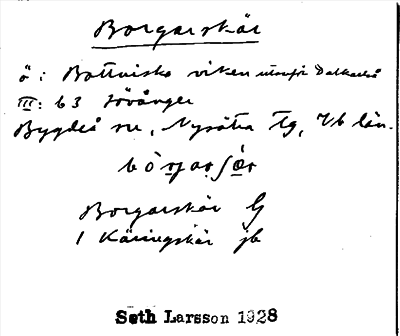 Borgarskär
ö: Bottniska viken utanför Dalkarlså
III: b 3 Lövånger
Bygdeå sn, Nysätra tg, Vb län.
Borgarskär G
1 Käringskär jb
Seth Larsson 1928